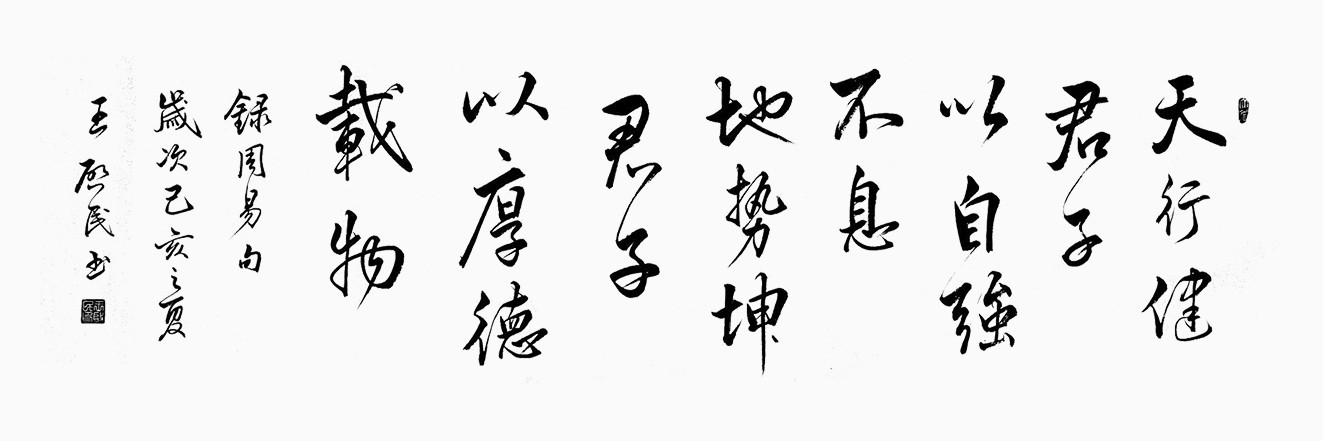 天行健
君子
以自強
不息
地势坤
君子
以厚德
載物
録周易句
歳次己亥之夏
王啟民书